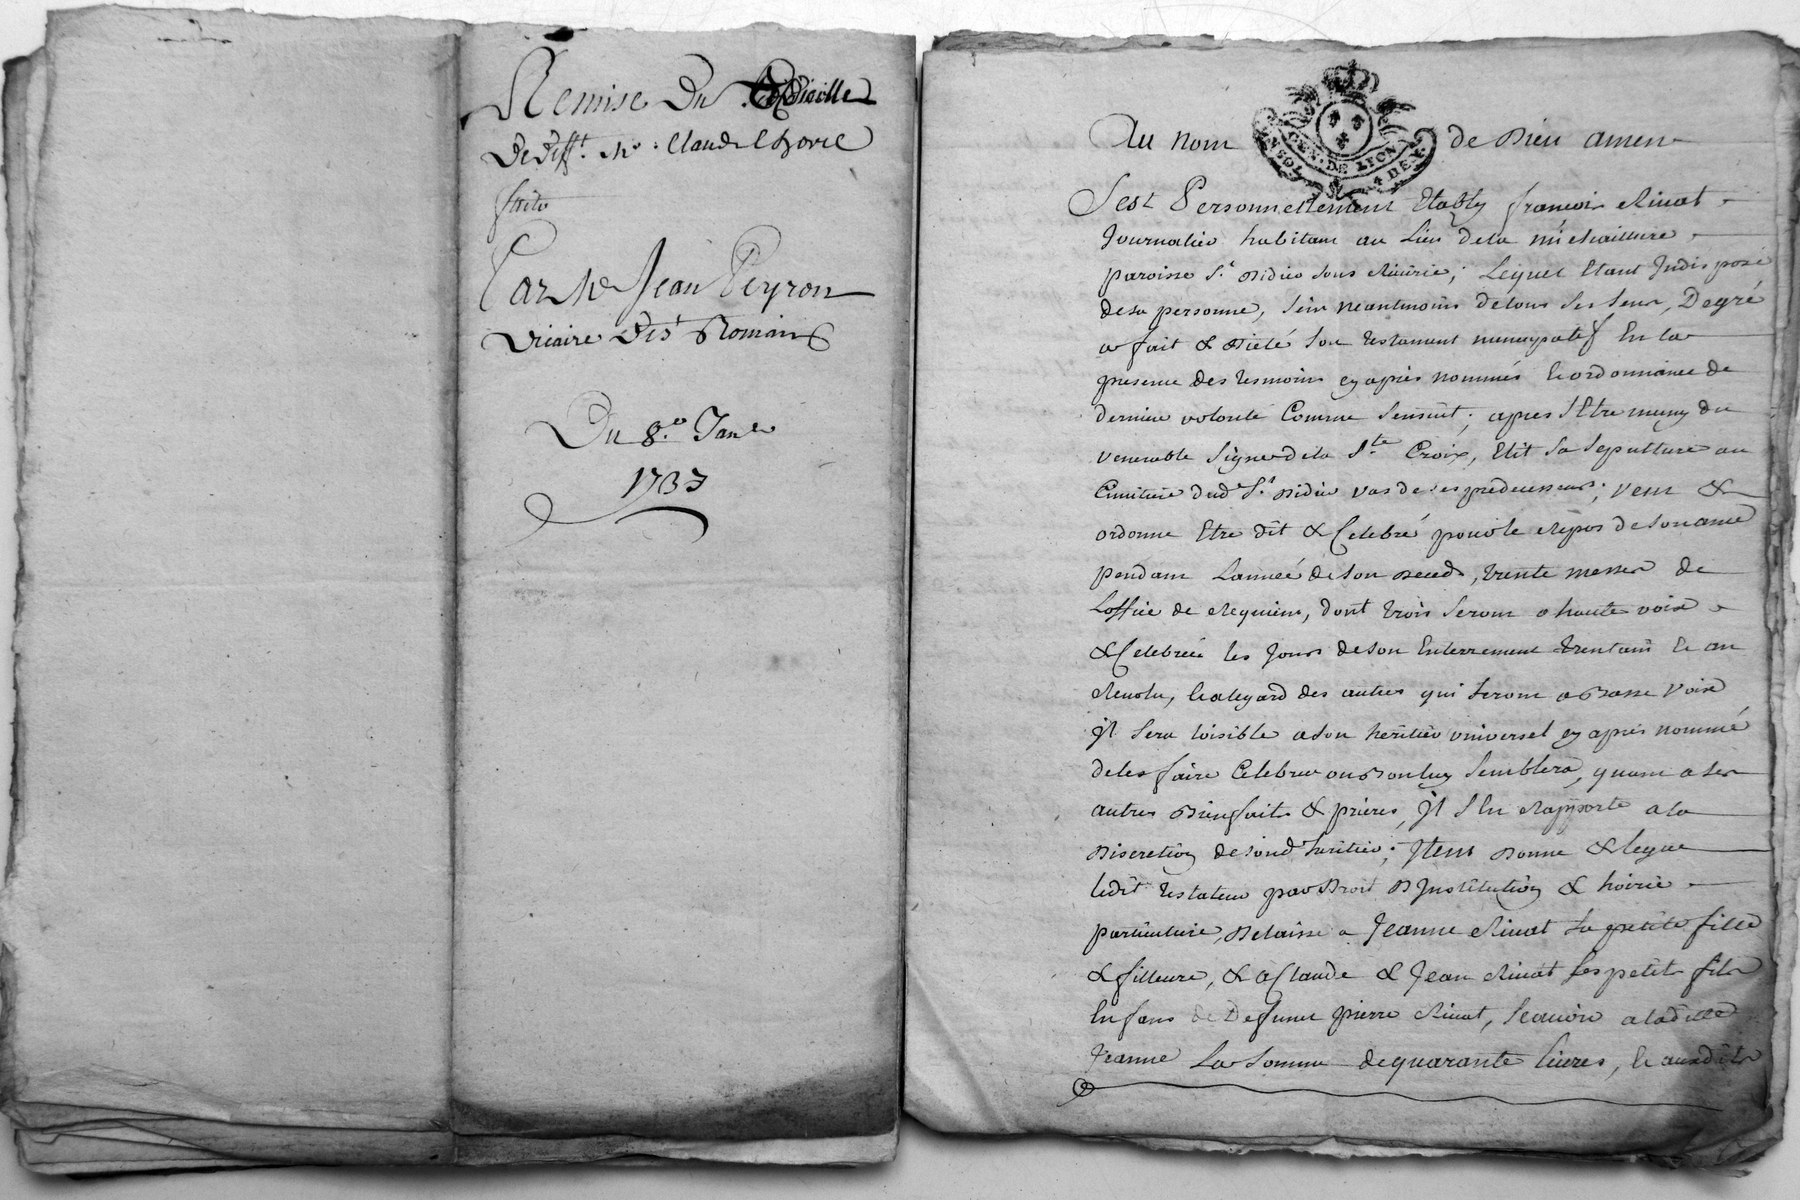 Remise Du Codicille
De deff.t M.e Claude Chovel
faite
Par M.e Jean Peyron
Vicaire De s.t Romain
Du 8.e Jan.er
1737
Au nom de Dieu amen
GEN. DE LYON
4 DE
S'est Personnellement Etably francois Rivat
Journalier habitant au Lieu dela
paroisse S.t Didier sous Riverie; Lequel Etant Indisposé
desa personne, sein neantmoins detous ses sens, Degré
a fait & dicté son testament nuncupatif En la
presence des tesmoins cy après nommés & ordonnance de
derniere volonté Comme sensuit; apres S'Etre muny du
venerable Signe dela S.te Croix, Elit sa sepulture au
Cimitiere dud S.t Didier vas de ses predecesseurs; veut &
ordonne Etre dit & Celebré pour le Repos de son ame
pendant Lanneé de son deced, trente messes de
Loffice de Requiem, dont trois seront a haute voix
& Celebreés les Jours de son Enterrement trentain & an
Revolu, & alegard des autres qui seront a Basse Voix
Jl sera loisible a son heritier universel cy après nommé
deles faire Celebrer ou Bon luy semblera, quant a ses
autres Bienfaits & prieres, Jl s'En Rapporte a la
Discretion de sond heritier; Jtem Donne & legue
ledit testateur par Droit D Jnstitution & hoirie
particuliere, Delaisse a Jeanne Rivat sa petite fille
& filleure, & a Claude & Jean Rivat ses petit fils
Enfans de Defunt pierre Rivat, scavoir a ladite
Jeanne La somme de quarante livres, & ausdits